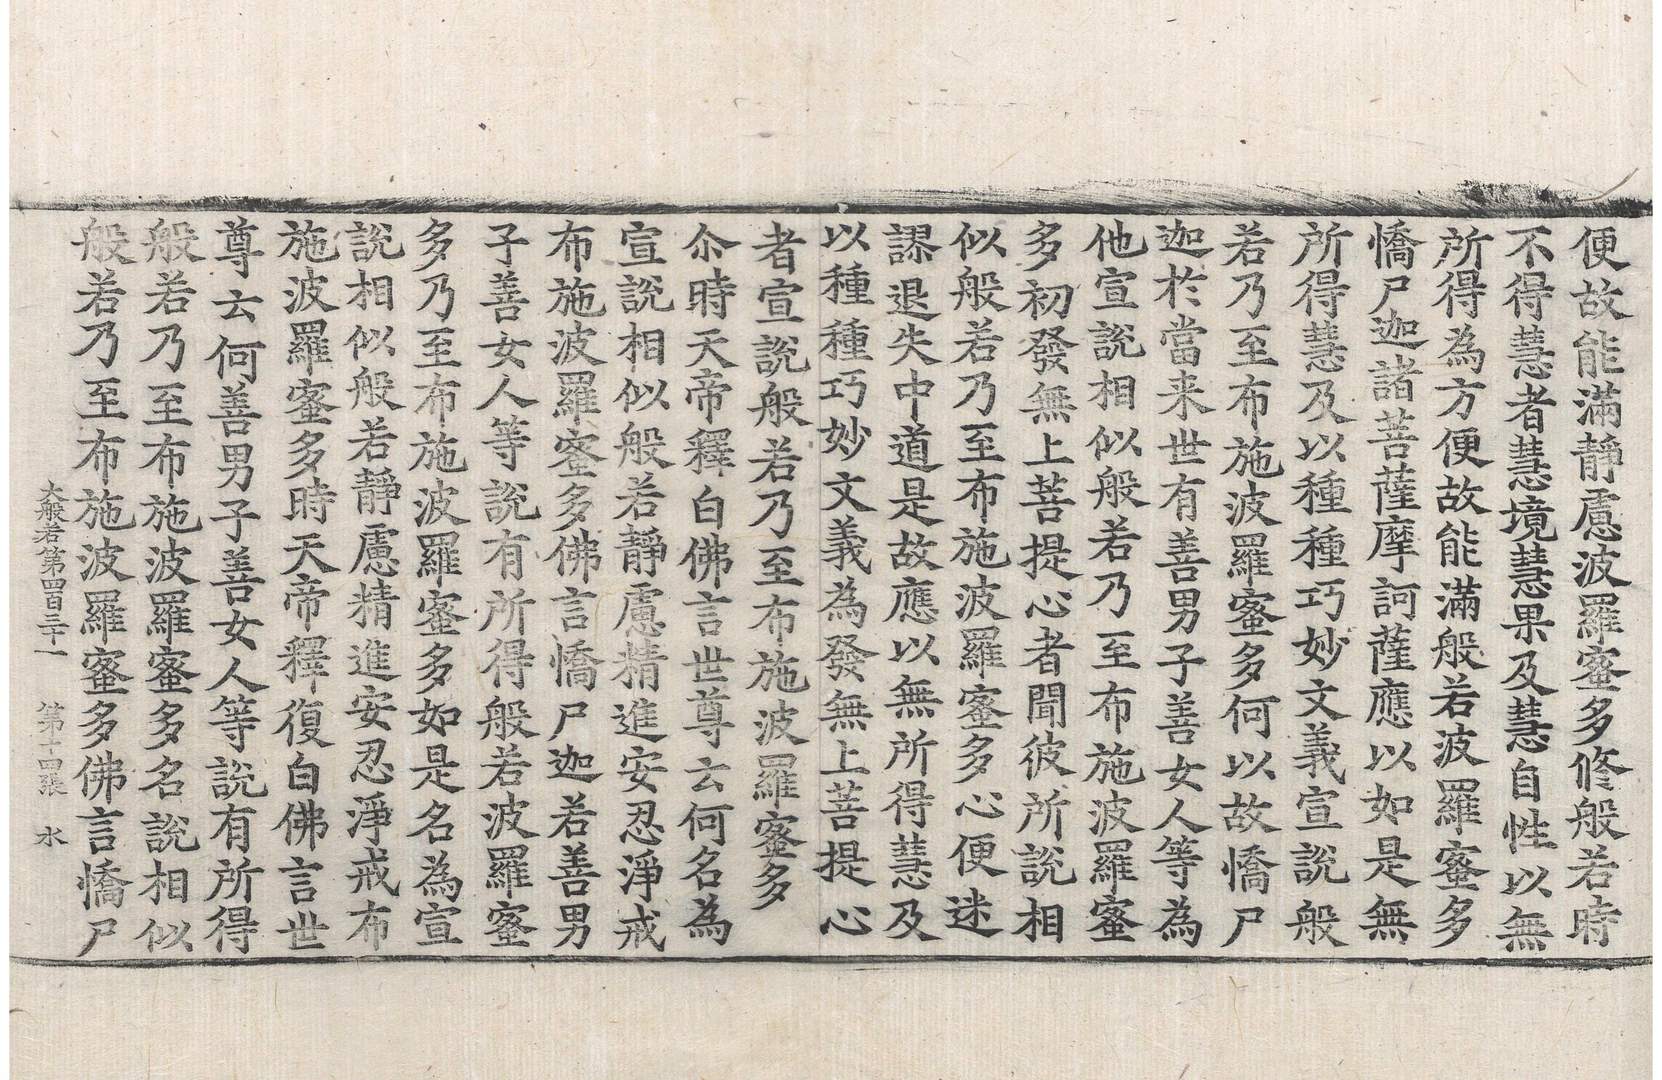 便故能滿靜慮波羅蜜多修般若時
不得慧者慧境慧果及慧自性以無
所得為方便故能滿般若波羅蜜多
憍尸迦諸菩薩摩訶薩應以如是無
所得慧及以種種巧妙文義宣說般
若乃至布施波羅蜜多何以故憍尸
迦於當来世有善男子善女人等為
他宣說相似般若乃至布施波羅蜜
多初發無上菩提心者聞彼所說相
似般若乃至布施波羅蜜多心便迷
謬退失中道是故應以無所得慧及
以種種巧妙文義為發無上菩提心
者宣說般若乃至布施波羅蜜多
尒時天帝釋白佛言世尊云何名為
宣說相似般若靜慮精進安忍淨戒
布施波羅蜜多佛言憍尸迦若善男
子善女人等說有所得般若波羅蜜
多乃至布施波羅蜜多如是名為宣
說相似般若靜慮精進安忍淨戒布
施波羅蜜多時天帝釋復白佛言世
尊云何善男子善女人等說有所得
般若乃至布施波羅蜜多名說相似
般若乃至布施波羅蜜多佛言憍尸
大般若第四百三十一 第十四張 水